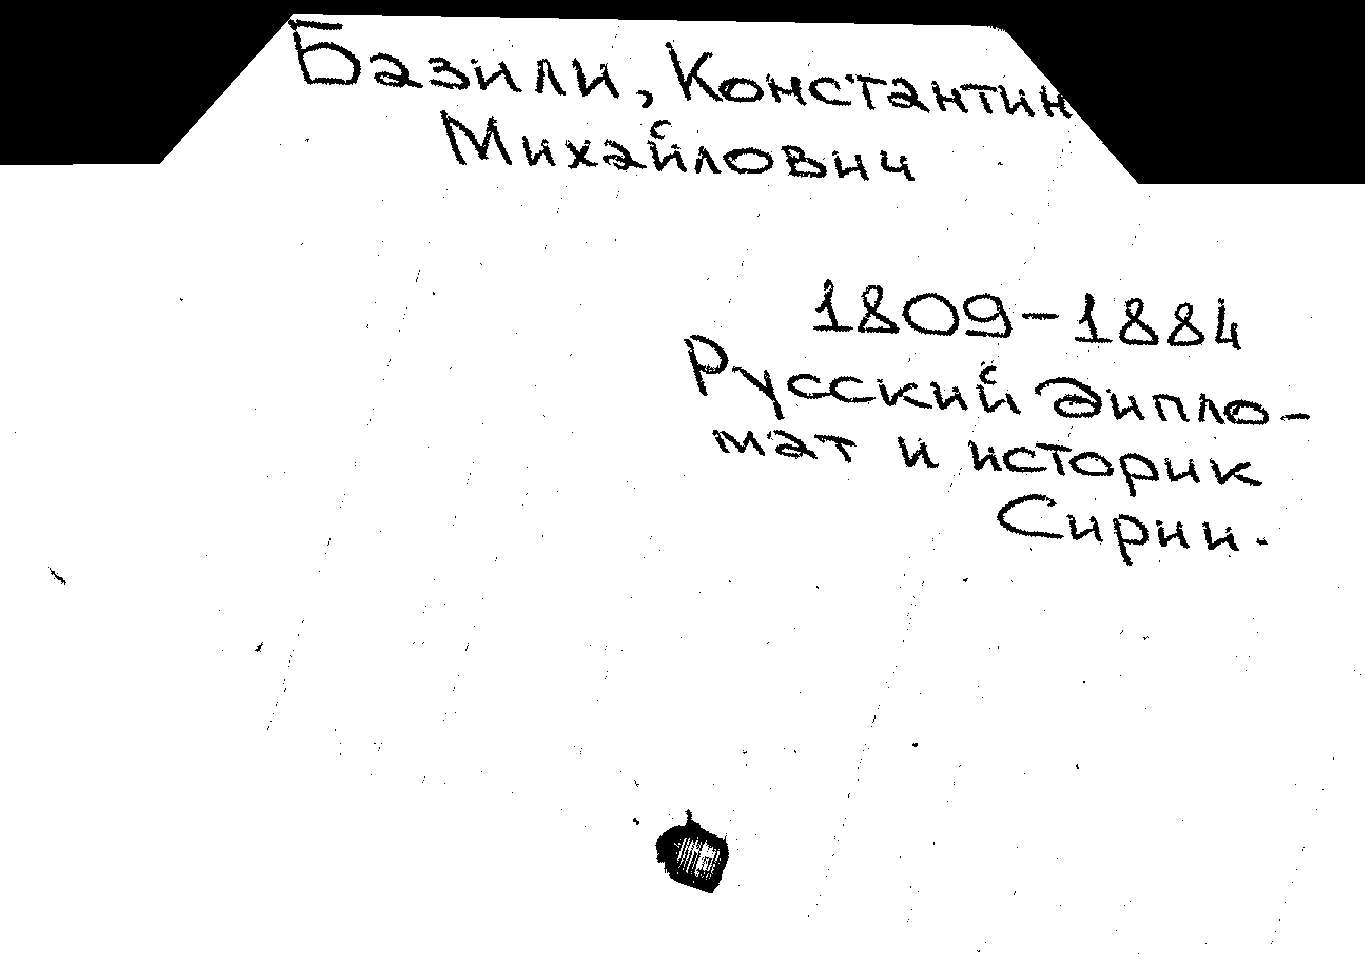 Базили, Константин
Михайлович
1809-1884
Русский дипло-
мат и историк
Сирии.